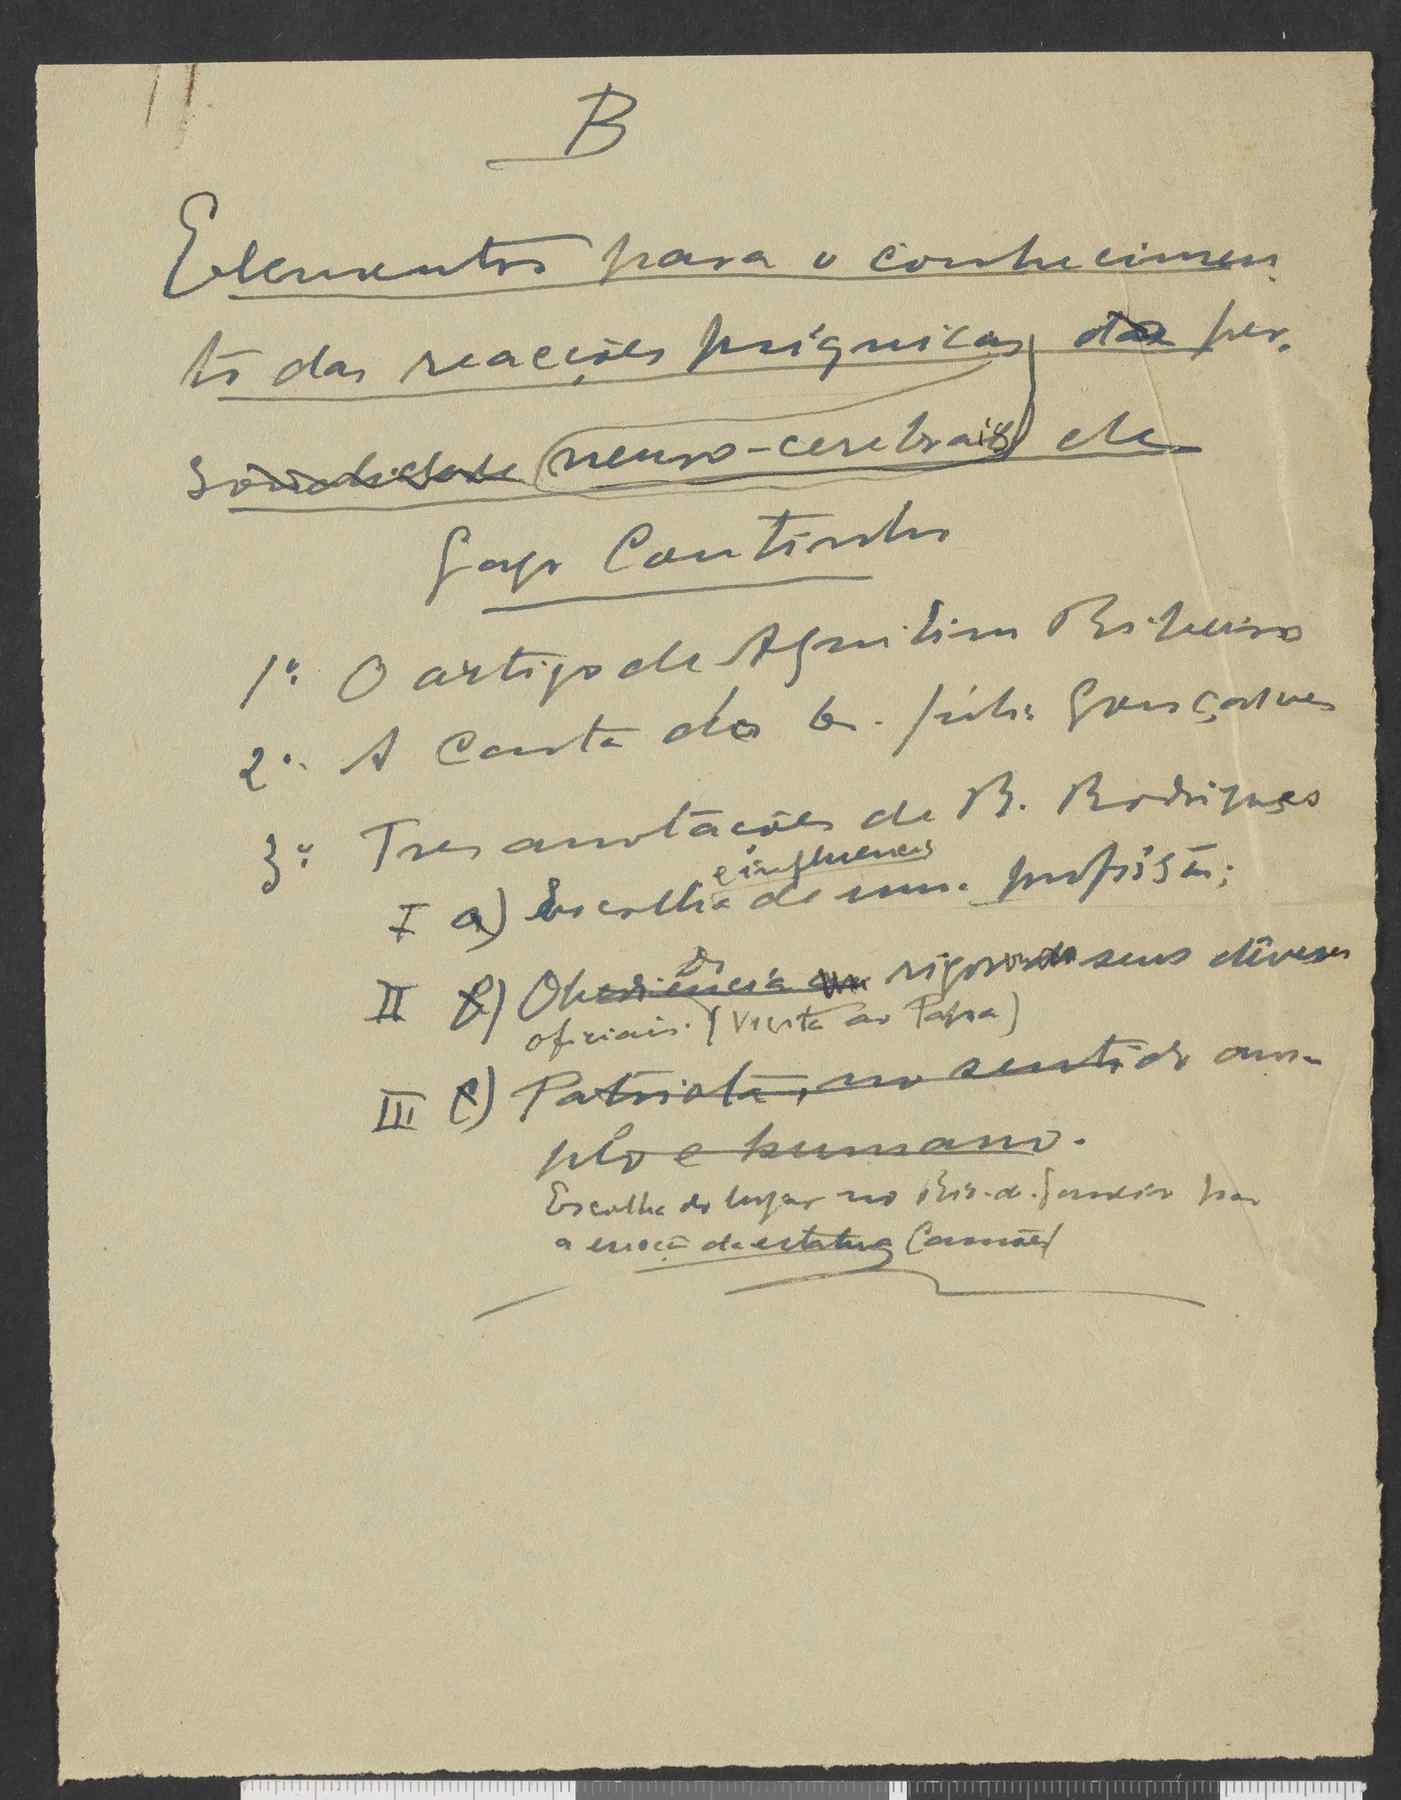 B
Elementos para o conhecimen
to das reacções psíquicas da per
sonalidade (neuro-cerebrais) de
Gago Coutinho
1º O artigo de Aquilino Ribeiro
2º A Carta do Júlio Gonçalves
3º Tres anotações de B. Rodrigues
e influencia
I a) Escolha de uma profissão;
II b) Obediência rigor seus deveres
oficiais. (Visita ao Papa)
III c) Patriota, no sentido am-
plo e humano.
Escolha do lugar no Rio-de-Janeiro para
a erecção da estatua Camões